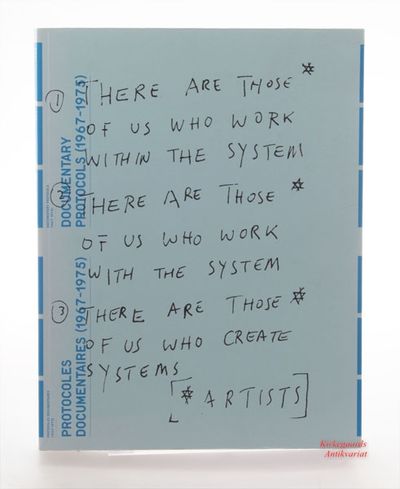 ① THERE ARE THOSE*
OF US WHO WORK
WITHIN THE SYSTEM
② THERE ARE THOSE*
OF US WHO WORK
WITH THE SYSTEM
③ THERE ARE THOSE*
OF US WHO CREATE
SYSTEMS
[* ARTISTS]
DOCUMENTARY
PROTOCOLS (1967-1975)
PROTOCOLES
DOCUMENTAIRES (1967-1975)
Kirkegaards
Antikvariat